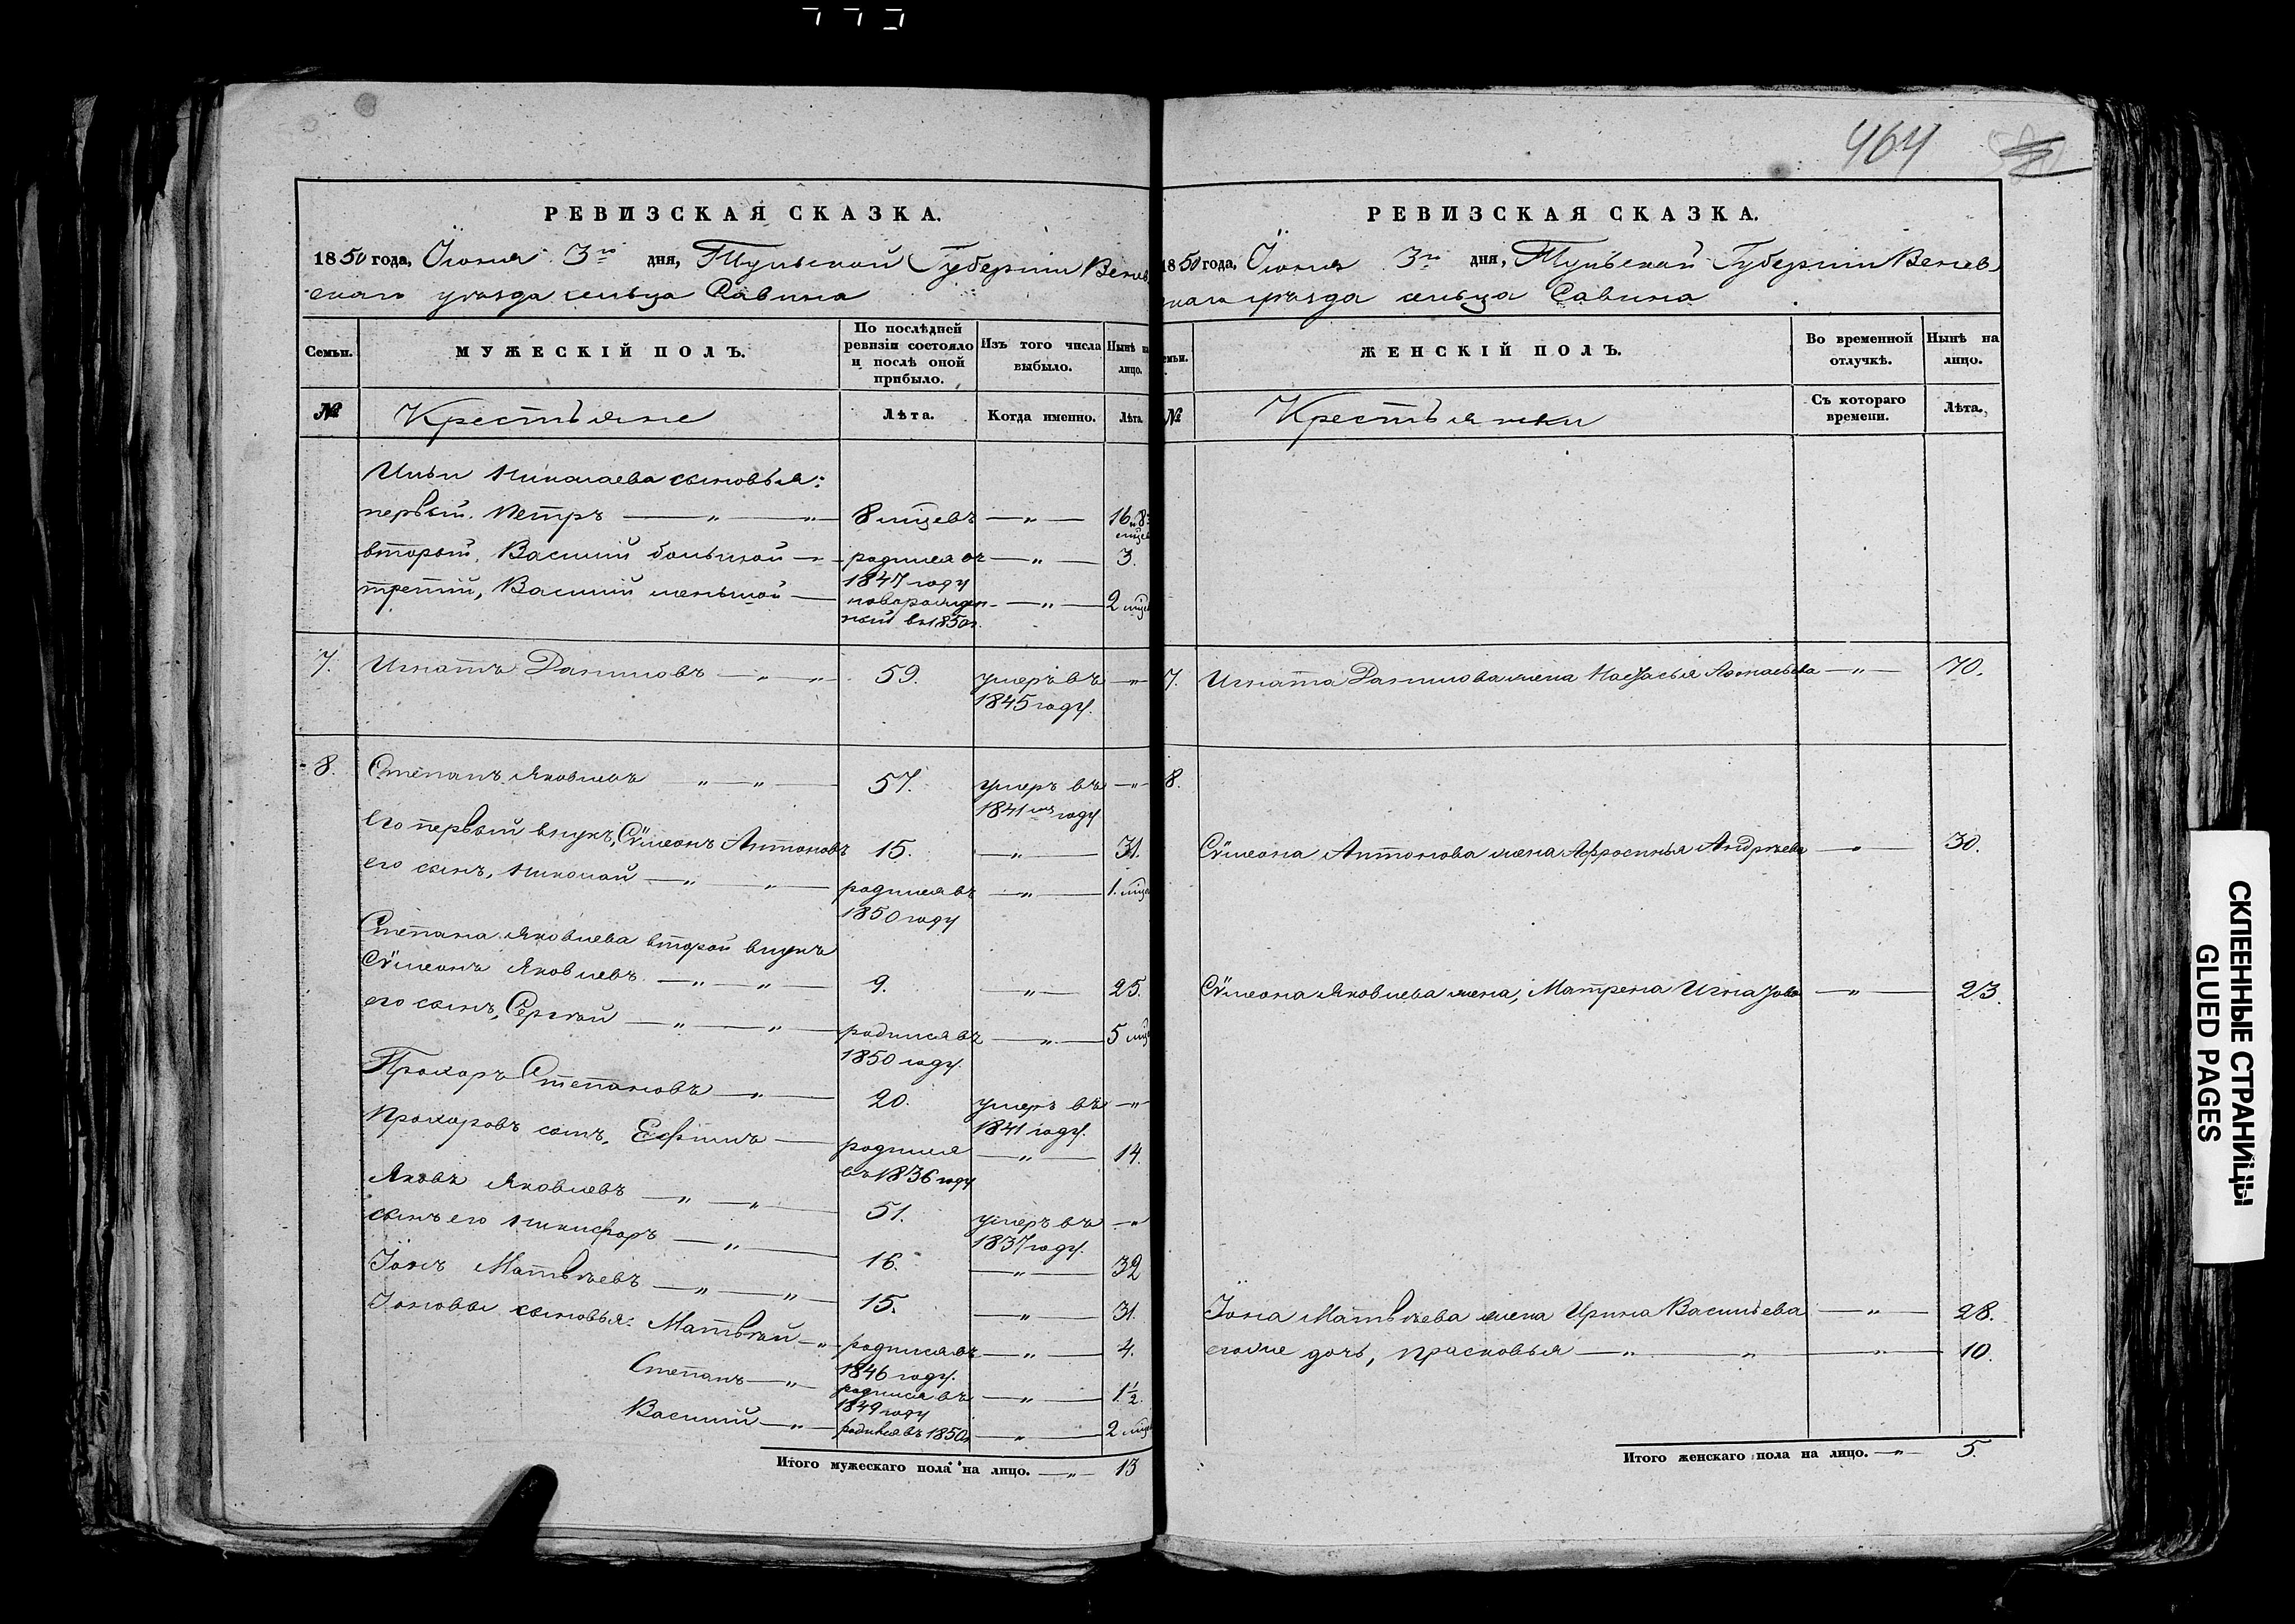 464
РЕВИЗСКАЯ СКАЗКА.
1850 года, Іюня 3го дня, Тульской Губерніи Венев
скаго уѣзда сельца Савина
Семьи.
МУЖЕСКІЙ ПОЛЪ.
По послѣдней
ревизіи состояло
и послѣ оной
прибыло.
Изъ того числа
выбыло.
Нынѣ на
лицо.
№
Крестьяне
Лѣта.
Когда именно.
Лѣта.
Ильи Николаева сыновья:
первый. Петръ — „ — „ 8 мцевъ — „ — 16 и 8
мцев
второй, Василій большой — родился въ — „ — 3.
1847 году
третій, Василій меньшой — новорожден- — „ — 2 мце
ный въ 1850 г.
7. Игнатъ Даниловъ — „ — „ 59. умеръ въ — „
1845 году.
8. Степанъ Яковлевъ „ — „ — 57. умеръ въ — „ —
1841мъ году
Его первый внукъ, Сѵмеонъ Антоновъ 15. — „ — 31.
его сынъ, Николай — „ — „ — родился въ — „ — 1. мце
1850 году
Степана Яковлева второй внукъ
Сѵмеонъ Яковлевъ — „ — „ — 9. — „ — 25.
его сынъ, Сергѣй — „ — „ — родился въ — „ — 5 мце
1850 году.
Прохоръ Степановъ — „ — 20. умеръ въ — „ —
1841 году.
Прохоровъ сынъ, Ефимъ — родился — „ — 14.
въ 1836 году
Яковъ Яковлевъ — „ — „ — 51. умеръ въ — „
1837 году.
сынъ его Никифоръ — „ — 16. — „ — 32
Іонъ Матвѣевъ — „ — „ — 15. — „ — 31.
Іоновы сыновья: Матвѣй — „ — родился въ — „ — 4.
1846 году.
Степанъ — „ — родился въ — „ — 1 1/2.
1849 году
Василій — „ — родился въ 1850 г. — „ — 2 мце
Итого мужескаго пола на лицо. — „ — 13
РЕВИЗСКАЯ СКАЗКА.
1850 года, Іюня 3го дня, Тульской Губерніи Венев
скаго уѣзда сельца Савина
емьи.
ЖЕНСКІЙ ПОЛЪ.
Во временной
отлучкѣ.
Нынѣ на
лицо.
№
Крестьянки
Съ котораго
времени.
Лѣта.
7. Игната Данилова жена Настасья — „ — 70.
8.
Сѵмеона Антонова жена Афросинья Андрѣева — „ — 30.
Сѵмеона Яковлева жена, Матрена Игнатова — „ — 23.
Іона Матвѣева жена Ирина Васильева — „ — 28.
его же дочь, Прасковья — „ — „ — „ — 10.
Итого женскаго пола на лицо. — „ — 5.
СКЛЕЕННЫЕ СТРАНИЦЫ
GLUED PAGES